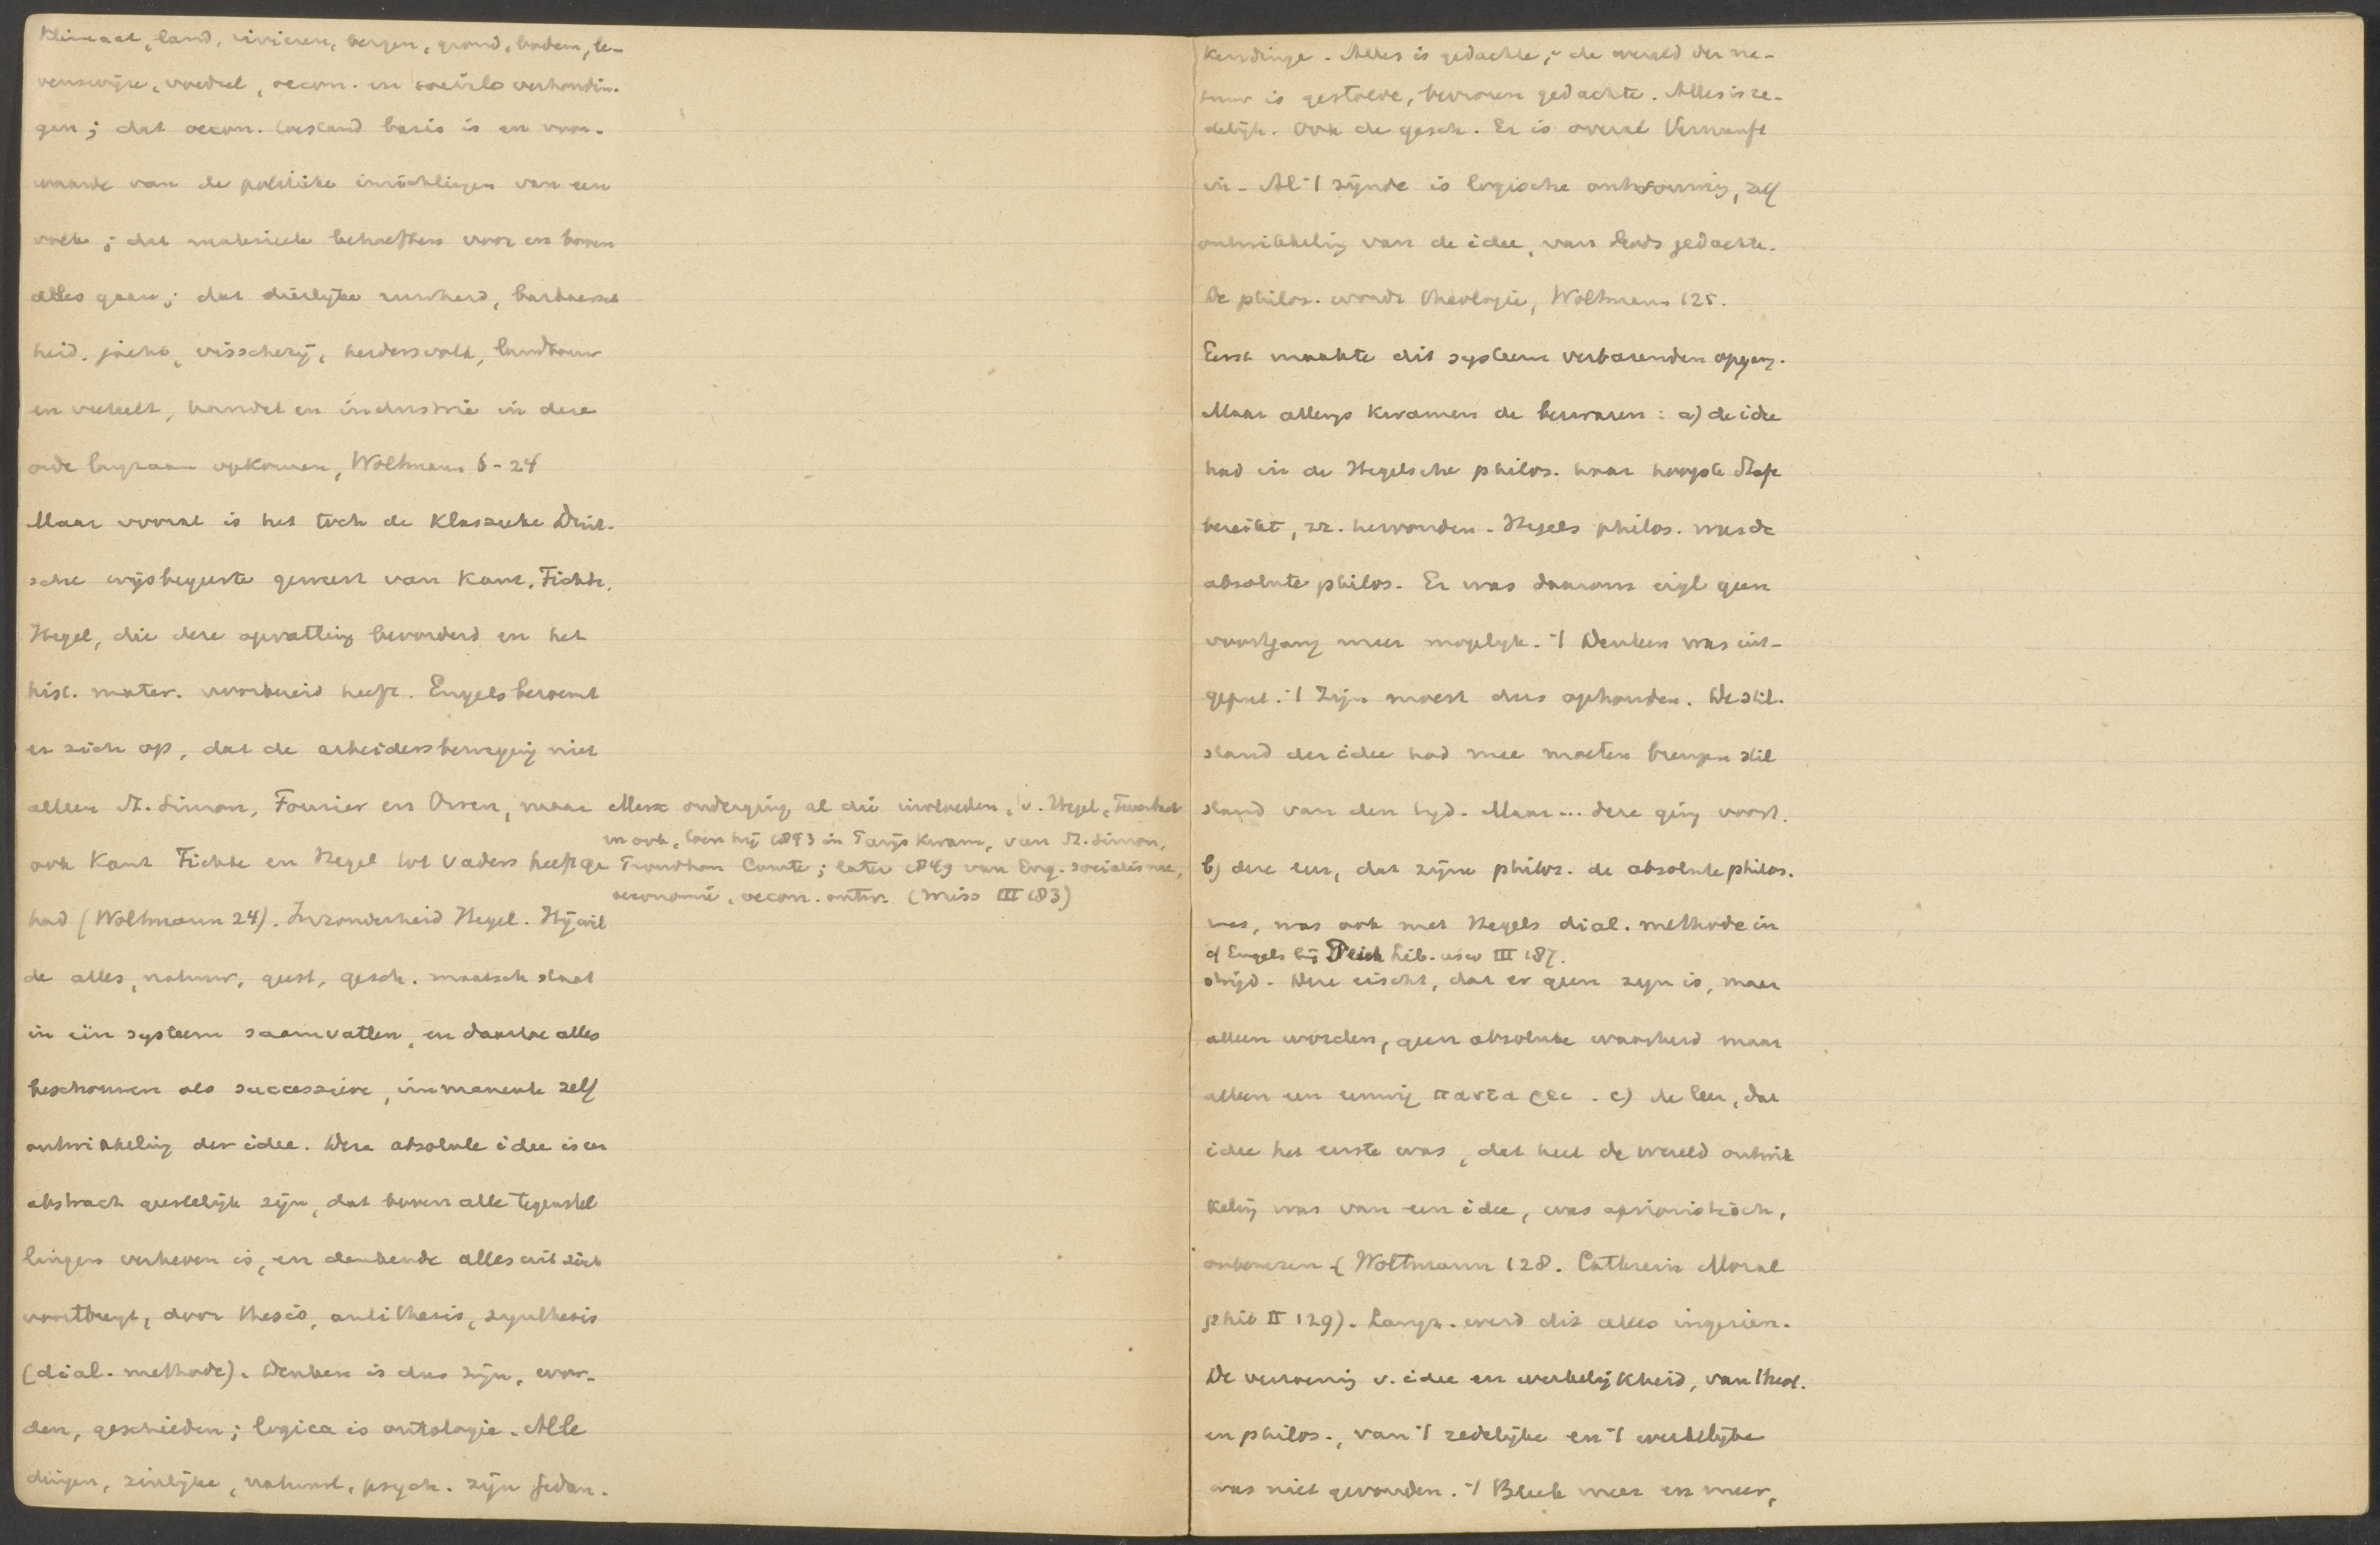 Klimaat, land, rivieren, bergen, grond, bodem, le-
venswijze, voedsel, oecon. en sociale verhoudin-
gen; dat oecon. toestand basis is en voor-
waarde van de politieke inrichtingen van een
volk; dat materieele behoeften voor en boven
alles gaan; dat dierlijke ruwheid, barbaarsch
heid, jacht, visscherij, herdersvolk, landbouw
en veeteelt, handel en industrie in deze
orde langzaam opkomen, Woltmann 6-24
Maar vooral is het toch de klassieke Duit-
sche wijsbegeerte geweest van Kant, Fichte,
Hegel, die deze opvatting bevorderd en het
hist. mater. voorbereid heeft. Engels beroemt
er zich op, dat de arbeidersbeweging niet
alleen St. Simon, Fourier en Owen, maar
ook Kant Fichte en Hegel tot vaders heeft ge
had (Woltmann 24). Inzonderheid Hegel. Hij wil
de alles, natuur, geest, gesch. maatsch staat
in één systeem saamvatten, en daartoe alles
beschouwen als successieve, immanente zelf
ontwikkeling der idee. Deze absolute idee is een
abstract geestelijk zijn, dat boven alle tegenstel
lingen verheven is, en denkende alles uit zich
voortbrengt, door thesis, antithesis, synthesis
(dial. methode). Denken is dus zijn, wor-
den, geschieden; logica is ontologie. Alle
dingen, zinlijke, natuurl, psych. zijn gedan-
Marx onderging al die invloeden, v. Hegel, Feuerbach
en ook, toen hij 1843 in Parijs kwam, van St. Simon,
Proudhon Comte; later 1849 van Eng. socialisme,
oeconomie, oecon. antw. (Miss III 183)
kendinge. Alles is gedachte; de wereld der na-
tuur is gestolde, bevroren gedachte. Alles is re-
delijk. Ook de gesch. Er is overal Vernunft
in. Al 't zijnde is logische ontvouwing, zelf
ontwikkeling van de idee, van Gods gedachte.
De philos. wordt theologie, Woltmann 125.
Eerst maakte dit systeem verbazenden opgang.
Maar allengs kwamen de bezwaren: a) de idee
had in de Hegelsche philos. haar hoogste stap
bereikt, zz. hervonden. Hegels philos. was de
absolute philos. Er was daarom eigl geen
voortgang meer mogelijk. 't Denken was uit-
geput. 't Zijn moest dus ophouden. De stil-
stand der idee had mee moeten brengen stil
stand van den tijd. Maar... deze ging voort.
b) deze leer, dat zijne philos. de absolute philos.
was, was ook met Hegels dial. methode in
cf Engels bij Diehl Lib. usw III 187.
strijd. Deze eischt, dat er geen zijn is, maar
alleen worden, geen absolute waarheid maar
alleen een eeuwig παντα ρει. c) de leer, dat
idee het eerste was, dat heel de wereld ontwik
keling was van een idee, was aprioristisch,
onbewezen (Woltmann 128. Cathrein Moral
phil II 129). Langz. werd dit alles ingezien.
De verzoening v. idee en werkelijkheid, van theol.
en philos., van 't redelijke en 't werkelijke
was niet gevonden. 't Bleek meer en meer,